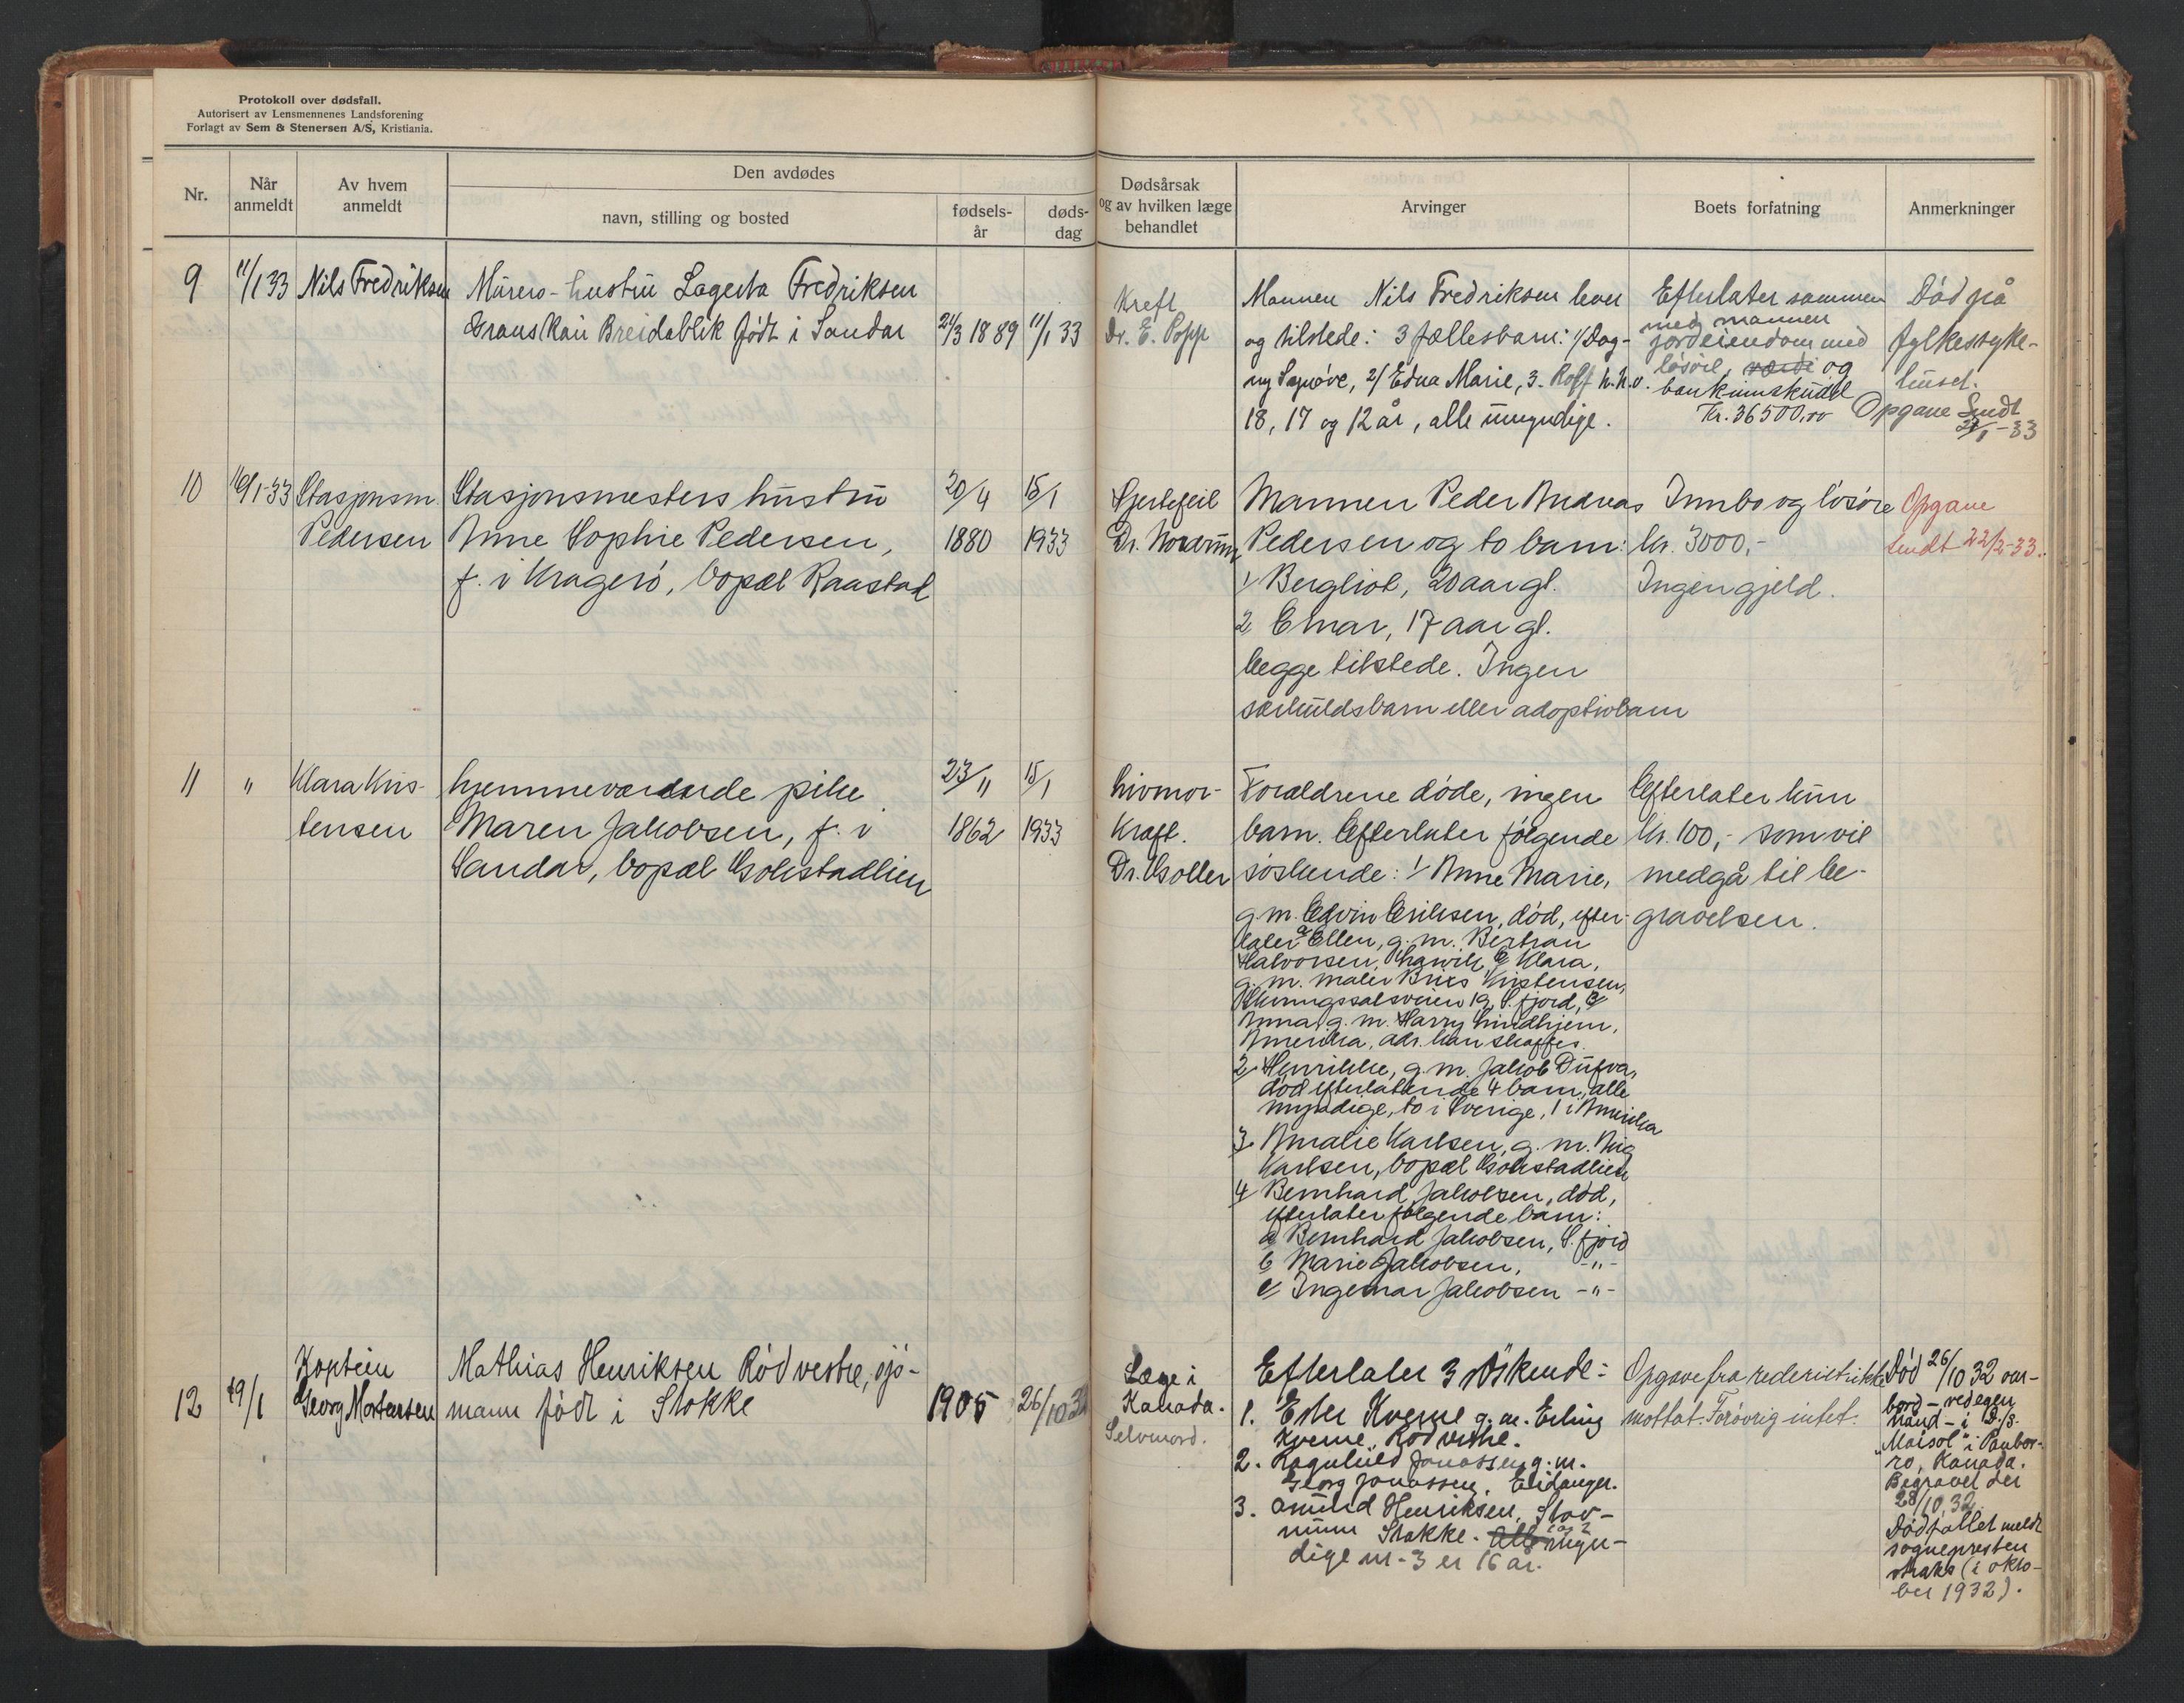 Protokoll over dødsfall.
Autorisert av Lensmennenes Landsforening
Forlagt av Sem & Stenersen A/S, Kristiania.
Nr.
Når
anmeldt
Av hvem
anmeldt
Den avdødes
navn, stilling og bosted
fødsels-
år
døds-
dag
Dødsårsak
og av hvilken læge
behandlet
Arvinger
Boets forfatning
Anmerkninger
9
11/1 33
Nils Fredriksen
Murers-hustru Lagerta Fredriksen
Breidablik født i Sandar
1889
11/1 33
Kreft
Dr. E. Popp
Mannen Nils Fredriksen lever
og tilstede: 3 fællesbarn: 1/ Dag-
ny Synøve, 2/ Edna Marie, 3. Rolf h.h.v.
18, 17 og 12 år, alle umyndige.
Efterlater sammen
med mannen
jordeiendom med
løsøre, og
bankinnskudd
Kr. 36500,00
Død på
fylkessyke-
huset.
Opgave Sendt
-33
10
16/1-33
Stasjonsm.
Pedersen
Stasjonsmesters hustru
Anne Sophie Pedersen,
f. i Kragerø, bopæl Raastad
20/4
1880
15/1
1933
Hjertefeil
Dr.
Mannen Peder Andreas
Pedersen og to barn:
1/ Bergliot, 20 aar gl.
2/ Einar, 17 aar gl.
begge tilstede. Ingen
særkuldsbarn eller adoptivbarn
Innbo og løsøre
kr. 3000,-
Ingen gjeld.
Opgave
sendt 22/2-33.
11
"
Klara Kris-
tensen
hjemmeværende pike
Maren Jakobsen, f. i
Sandar, bopæl Gokstadlien
23/11
1862
15/1
1933
Livmor-
kræft.
Dr. Holler
Forældrene døde, ingen
barn. Efterlater følgende
søskende: 1/ Anne Marie,
g.m. Edvin Eriksen, død, efter-
later a/ Ellen, g.m. Bertran
Halvorsen, Larvik, b/ Klara,
g.m. maler Brixs Kristensen,
19, S.fjord, c/
Anna g.m. Harry Lindhjem,
Amerika, adr. kan skaffes.
2/ Henrikke, g.m. Jakob Dufva,
død efterlatende 4 barn, alle
myndige, to i Sverige, 1 i Amerika
3/ Amalie Karlsen, g.m.
Karlsen, bopæl Gokstadlien
4/ Bernhard Jakobsen, død,
efterlater følgende barn:
a/ Bernhard Jakobsen, S.fjord
b/ Marie Jakobsen, -"-
c/ Ingemar Jakobsen -"-
Efterlater kun
kr. 100,- som vil
medgå til be-
gravelsen.
12
19/1
Kaptein
Georg Mortensen
Mathias Henriksen Rød vestre, sjø-
mann født i Stokke
1905
26/10 32
Læge i
Kanada.
Selvmord.
Efterlater 3 søskende:
1. Ester Kverne g.m. Erling
Kverne, Rød vestre.
2. Ragnhild Jonassen g.m.
Georg Jonassen, Eidanger.
3. Amund Henriksen,
Stokke. Alle myn-
dige nr. 3 er 16 år.
Opgave fra rederiet ikke
mottat. Forøvrig intet.
Død 26/10 32 om-
bord - ved egen
hånd - i D/s.
"Maisol" i
Kanada.
Begravet der
28/10 32.
Dødsfallet meldt
sognepresten
straks (i okto-
ber 1932).